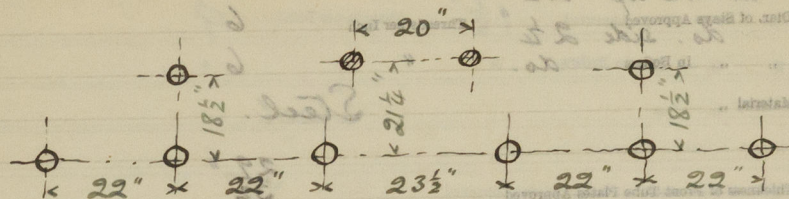 20"
18½"
21¼"
18½"
22" 22" 23½" 22" 22"